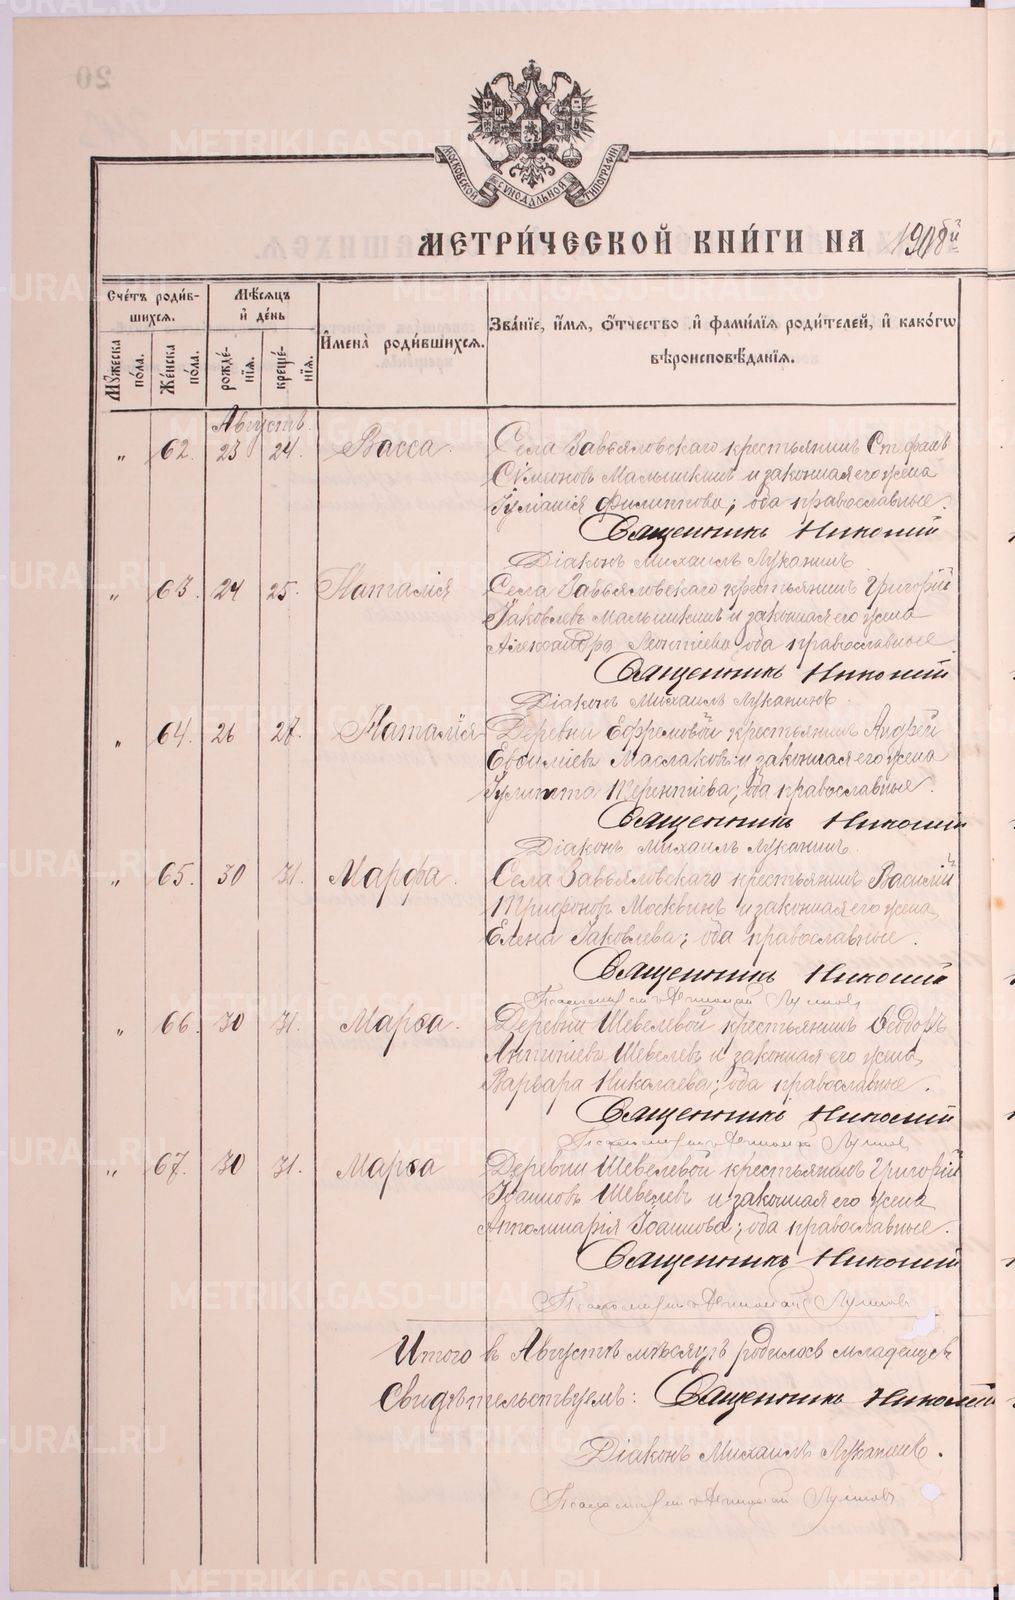 МОСКОВСКОЙ СѴНОДАЛЬНОЙ ТИПОГРАФІИ
МЕТРИ́ЧЕСКОЙ КНИ́ГИ НА 1908й
Сче́тъ роди́в-
шихся.
Мꙋ́жеска по́ла.
Же́нска по́ла.
Мѣ́сяцъ
и҆ де́нь
рожде́-
нїя.
креще́-
нїя.
И҆мена̀ роди́вшихся.
Зва́нїе, и҆́мя, ѻ҆́тчество и҆ фами́лїя роди́телей, и҆ како́гѡ
вѣроисповѣ́данїя.
Августъ.
„ 62. 23 24. Васса. Села Завьяловскаго крестьянинъ Стефанъ
Сѵмеоновъ Малышкинъ и законная его жена
Іуліанія Филиппова; оба православные.
Священникъ Николай
Діаконъ Михаилъ Луканинъ.
„ 63. 24 25. Наталія Села Завьяловскаго крестьянинъ Григорій
Іаковлевъ Малышкинъ и законная его жена
Александра Леонтіева оба православные.
Священникъ Николай
Діаконъ Михаилъ Луканинъ.
„ 64. 26 27. Наталія Деревни Ефремовой крестьянинъ Андрей
Евѳиміевъ Маслаковъ и законная его жена
Іулитта Терентіева; оба православные.
Священникъ Николай
Діаконъ Михаилъ Луканинъ.
„ 65. 30 31. Марфа. Села Завьяловскаго крестьянинъ Василій
Трифоновъ Москвинъ и законная его жена
Елена Іаковлева; оба православные.
Священникъ Николай
„ 66. 30 31. Марѳа. Деревни Шевелевой крестьянинъ Ѳеодоръ
Антоніевъ Шевелевъ и законная его жена
Варвара Николаева; оба православные.
Священникъ Николай
„ 67. 30 31. Марѳа Деревни Шевелевой крестьянинъ Григорій
Іоанновъ Шевелевъ и законная его жена
Апполинарія Іоаннова; оба православные.
Священникъ Николай
Итого въ Августѣ мѣсяцѣ родилось младенцевъ
Свидѣтельствуемъ: Священникъ Николай
Діаконъ Михаилъ Луканинъ.
METRIKI.GASO-URAL.RU